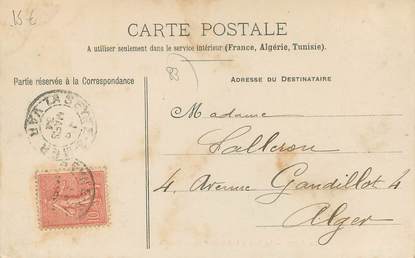 15 €
CARTE POSTALE
A utiliser seulement dans le service intérieur (France, Algérie, Tunisie).
Partie réservée à la Correspondance
ADRESSE DU DESTINATAIRE
83
Madame
Salleron
4, Avenue Gandillot 4
Alger
LA SEYNE
VAR
MARS
10